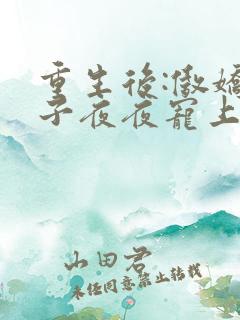 重生后:傲娇
子夜夜宠上
山田君
未经同意禁止转载